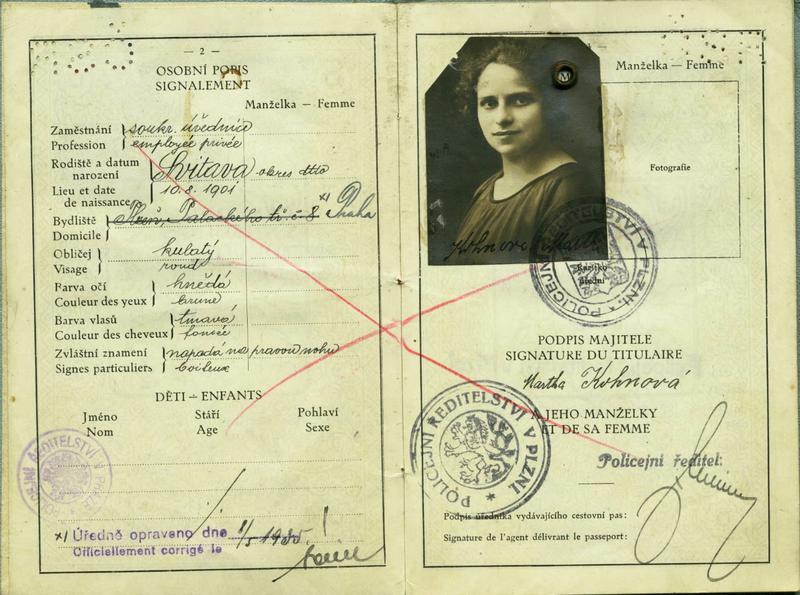 — 2 —
OSOBNÍ POPIS
SIGNALEMENT
Manželka — Femme
Zaměstnání soukr. úřednice
Profession employée privée
Rodiště a datum narození Svitava okres dtto
Lieu et date de naissance 10.8.1901
Bydliště Plzeň, Palackého tř. č. 8 x) Praha
Domicile
Obličej kulatý
Visage rond
Farva očí hnědá
Couleur des yeux brune
Barva vlasů tmavá
Couleur des cheveux foncée
Zvláštní znamení napadá na pravou nohu
Signes particuliers boiteux
DĚTI — ENFANTS
Jméno Stáří Pohlaví
Nom Age Sexe
POLICEJNÍ ŘEDITELSTVÍ V PLZNI
x) Úředně opraveno dne
Officiellement corrigé le
1935
Manželka — Femme
M
Fotografie
Kohnová
Razítko
úřední
POLICEJNÍ ŘEDITELSTVÍ V PLZNI
PODPIS MAJITELE
SIGNATURE DU TITULAIRE
Martha Kohnová
A JEHO MANŽELKY
ET DE SA FEMME
POLICEJNÍ ŘEDITELSTVÍ V PLZNI
Policejní ředitel:
Podpis úředníka vydávajícího cestovní pas:
Signature de l'agent délivrant le passeport: